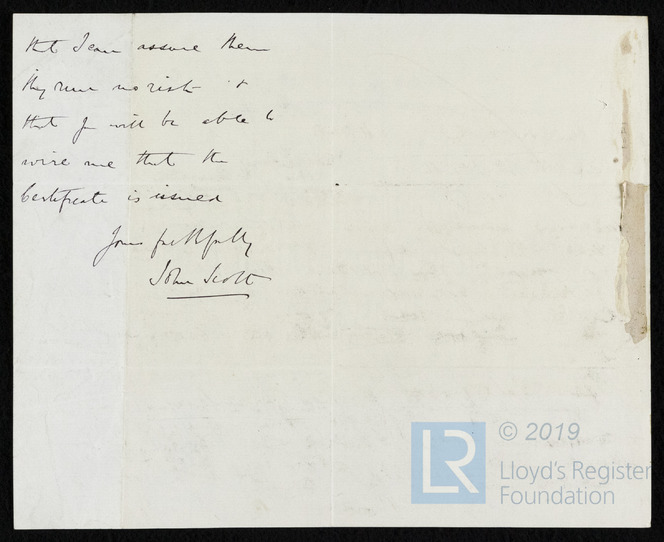 that I can assure them
they run no risk &
that you will be able to
wire me that the
Certificate is issued
Yours faithfully
John Scott
LR
© 2019
Lloyd's Register
Foundation